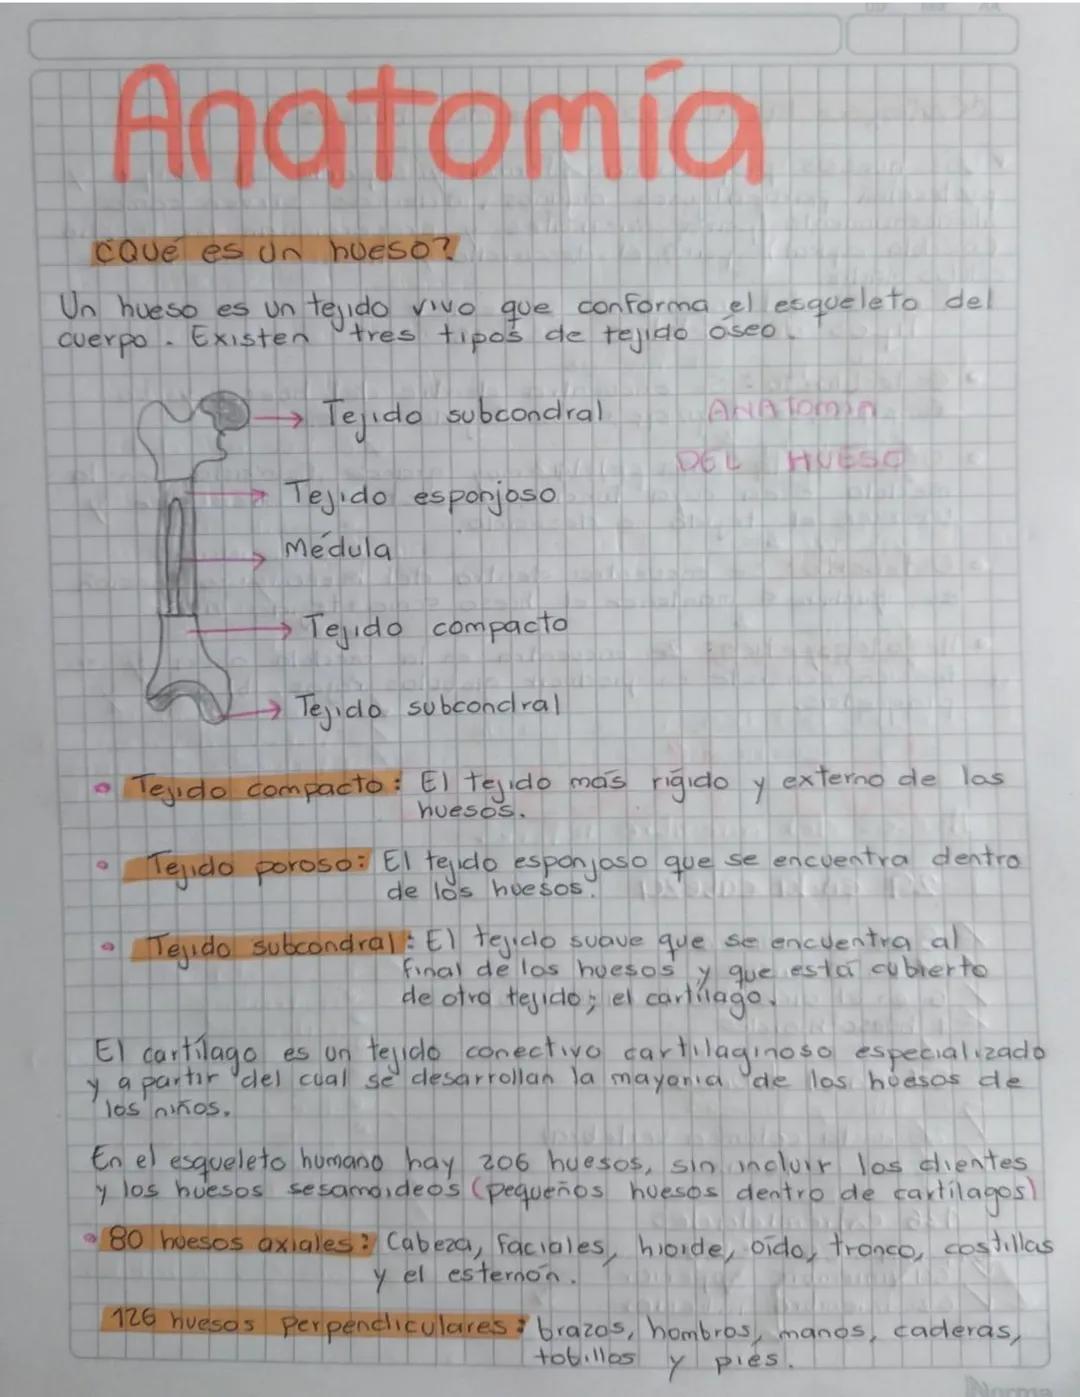 Anatomía
¿Qué es un hueso?
Un hueso es un tejido vivo que conforma el esqueleto del
cuerpo. Existen tres tipos de tejido óseo.
Tejido subcondral
ANATOMIA
DEL HUESO
Tejido esponjoso
Médula
Tejido compacto
Tejido subcondral
Tejido compacto: El tejido más rígido y externo de los
huesos.
Tejido poroso: El tejido esponjoso que se encuentra dentro
de los huesos.
Tejido subcondral: El tejido suave que se encuentra al
final de los huesos y que está cubierto
de otro tejido; el cartílago.
El cartílago es un tejido conectivo cartilaginoso especializado
y a partir del cual se desarrollan la mayoria de los huesos de
los niños.
En el esqueleto humano hay 206 huesos, sin incluir los dientes
y los huesos sesamoideos (pequeños huesos dentro de cartílagos)
80 huesos axiales: Cabeza, faciales, hioide, oído, tronco, costillas
y el esternón.
126 huesos perpendiculares: brazos, hombros, manos, caderas,
tobillos y piés.
Norma